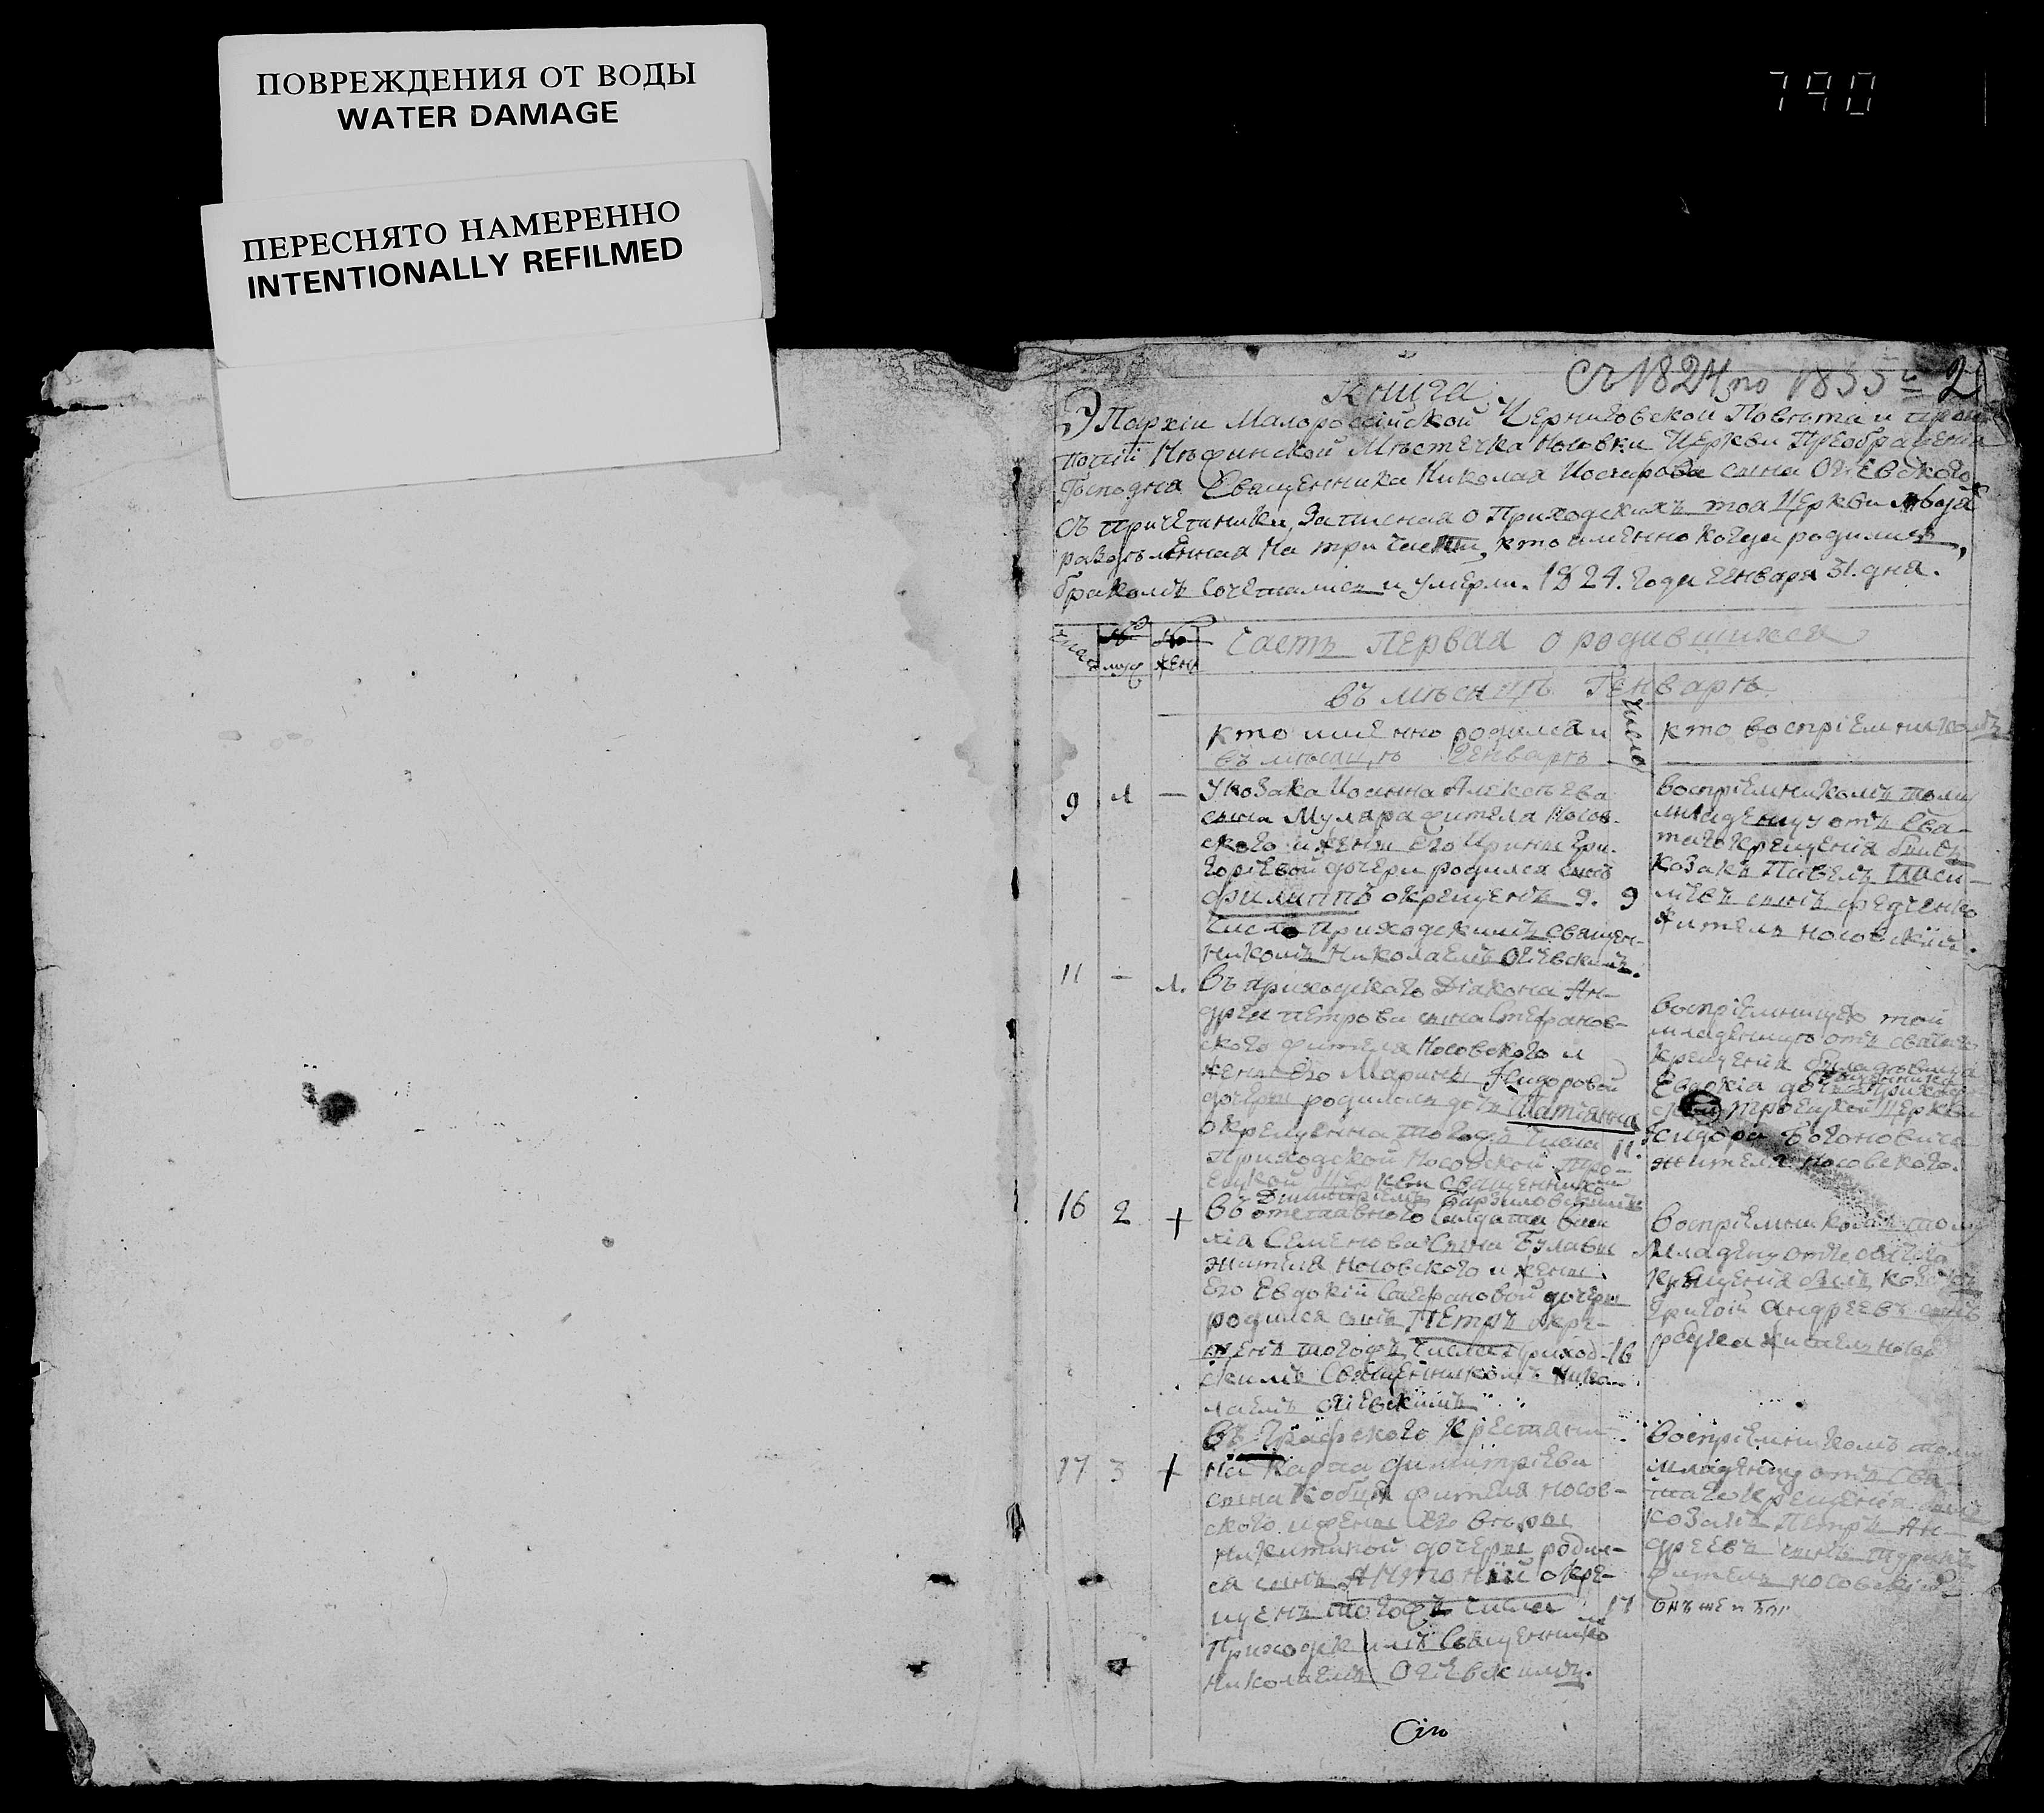 ПОВРЕЖДЕНИЯ ОТ ВОДЫ
WATER DAMAGE
ПЕРЕСНЯТО НАМЕРЕННО
INTENTIONALLY REFILMED
790
Съ 1824 по 1835 2
Книга
Эпархіи Малороссійской Черниговской Повѣта и
Нѣжинской Мѣстечка Носовки Церкви Преображенія
Господня Священника Николая сына Огіевского
съ причетники, Записная о Приходскихъ тоя Церкви
раздѣленная на три части, кто именно когда родились,
бракомъ сочетались и умерли. 1824. года Генваря 31. дня.
Число № муж № жен Часть Первая о родившихся
въ мѣсяцѣ Генварѣ
кто именно родился и Число кто воспріемникомъ
въ мѣсяцѣ Генварѣ
9 1 — У козака Иоанна Алексѣева
сына Муляра жителя Носов-
ского и жены его Ирины Гри-
горіевой дочери родился сынъ
Филиппъ окрещенъ 9. 9
Числа Приходскимъ священ-
никомъ Николаемъ Огіевскимъ.
воспріемникомъ тому
младенцу отъ Свя-
таго Крещенія былъ
козакъ Павелъ
сынъ Федченко
житель носовскій.
11 - 1. Въ приходскаго Діакона Ан-
дрея Петрова сына Стефанов-
ского жителя Носовского и
жены его Марины Исидоровой
дочери родилась дочь Татіянна
окрещенна того Числа 11.
Приходской Носовской Тро-
ецкой Церкви священникомъ
Димитріемъ
воспріемницею той
младеницѣ отъ святаго
крещенія
Евдокія дочь священника
Троецкой Церкви
Исидора
жителя носовского.
16 2 + Въ отставного солдата
Семенова сына Булавы
жителя носовского и жены
его Евдокіи Стефановой дочери
родился сынъ Петръ окре-
щенъ тогожъ числа приход- 16
скимъ Священникомъ Нико-
лаемъ Огіевскимъ
Воспріемникомъ тому
Младенцу отъ святаго
крещенія былъ козакъ
Григорій Андреевъ сынъ
житель
Въ Графского Крестяни-
17 3 + на Карпа Димитріева
сына жителя носов-
ского и жены его Вѣры
Никитиной дочеры родил-
ся сынъ Антоній окре-
щенъ тогожъ числа 17
Приходскимъ Священнико
Николаемъ Огіевскимъ.
Воспріемникомъ тому
младенцу отъ Свя-
таго Крещенія былъ
козакъ Петръ Ан-
дреевъ сынъ
житель носовскій